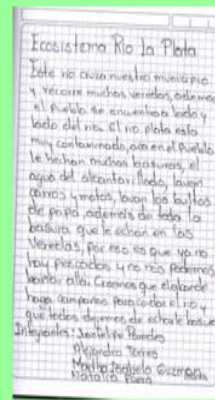 Ecosistema Rio La Plata
Este rio cruza nuestro municipio
y recorre muchas veredas, ademas
el pueblo se encuentra lado y
lado del rio. El rio plata esta
muy contaminado, aca en el pueblo
le hechan muchas basuras, el
agua del alcantarillado, lavan
carros y motos, lavan los bultos
de papa, además de toda la
basura que le echan en las
veredas, por eso es que ya no
hay pescados y no nos podemos
bañar alla. Creemos que el alcalde
haga campañas para cuidar el rio, y
que todos dejemos de echarle basura
Integrantes: Juan Felipe Paredes
Alejandra Torres
Martha Isabela Guzman
Natalia